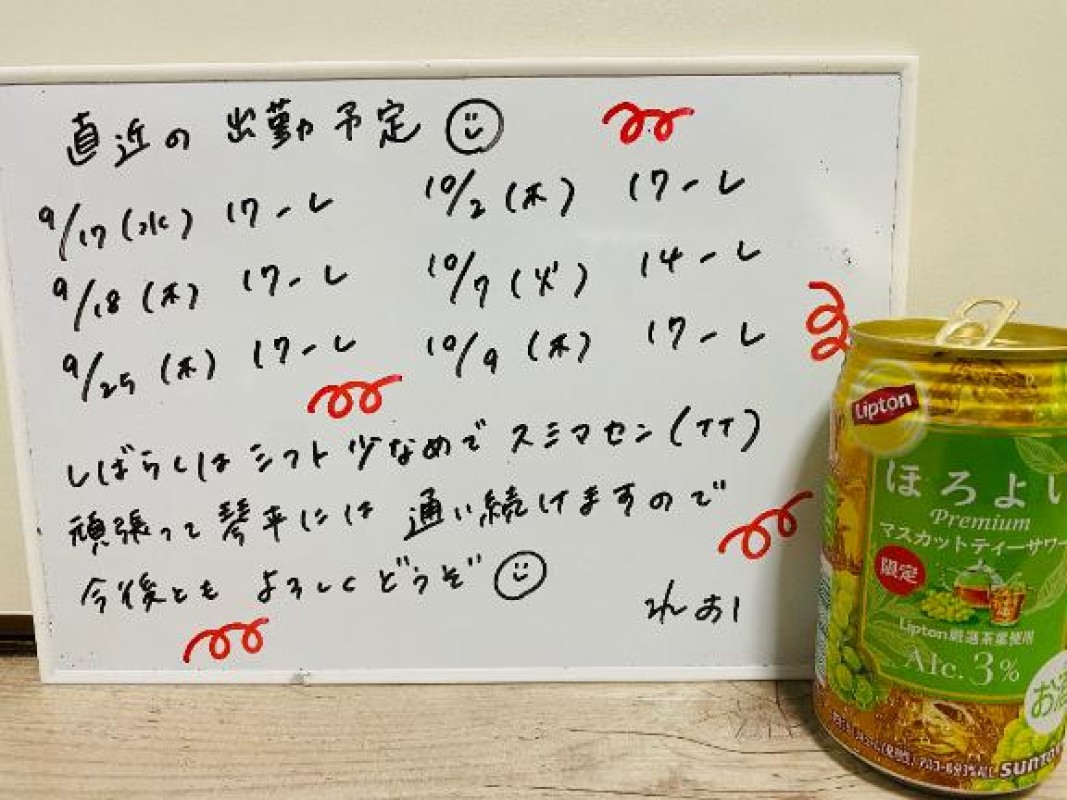 直近の出勤予定
9/17(水) 17-L
10/2(木) 17-L
9/18(木) 17-L
10/7(火) 14-L
9/25(木) 17-L
10/9(木) 17-L
しばらくはシフト少なめでスミマセン(TT)
頑張って琴平には通い続けますので
今後ともよろしくどうぞ
れおー
Lipton
ほろよい
Premium
マスカットティーサワー
限定
Lipton厳選茶葉使用
Alc.3%
お酒
SUNTO